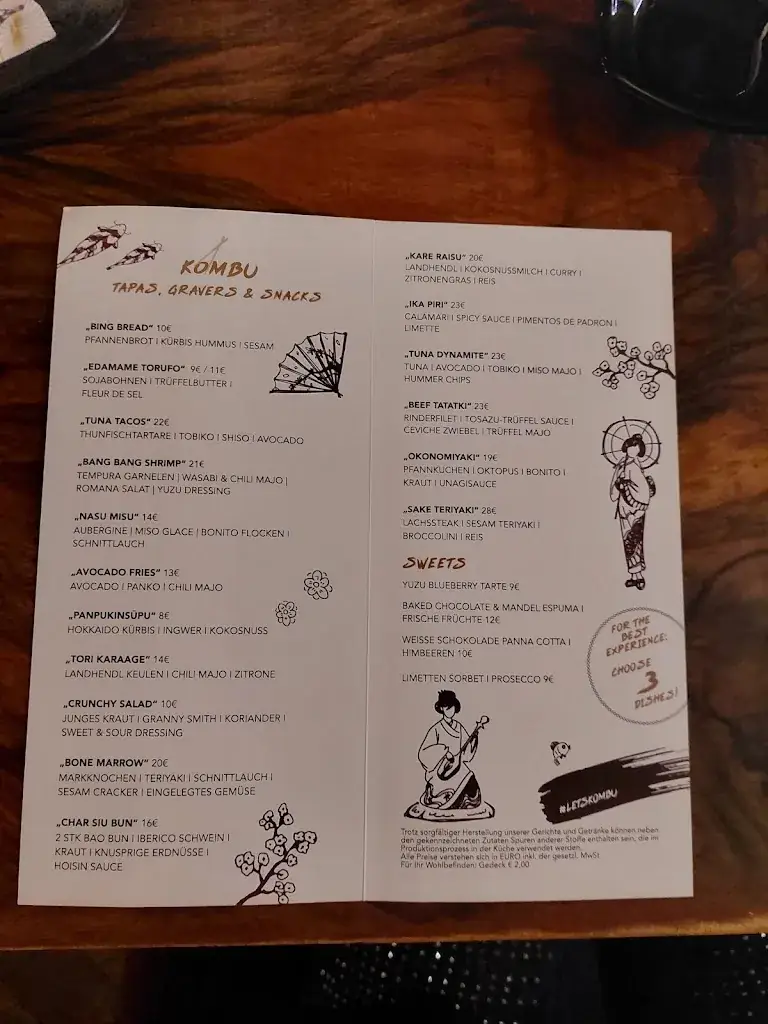 KOMBU
TAPAS, GRAVERS & SNACKS
„BING BREAD" 10€
PFANNENBROT I KÜRBIS HUMMUS I SESAM
„EDAMAME TORUFO" 9€ / 11€
SOJABOHNEN I TRÜFFELBUTTER I
FLEUR DE SEL
„TUNA TACOS" 22€
THUNFISCHTARTARE I TOBIKO I SHISO I AVOCADO
„BANG BANG SHRIMP" 21€
TEMPURA GARNELEN | WASABI & CHILI MAJO |
ROMANA SALAT | YUZU DRESSING
„NASU MISU" 14€
AUBERGINE | MISO GLACE | BONITO FLOCKEN I
SCHNITTLAUCH
„AVOCADO FRIES" 13€
AVOCADO I PANKO I CHILI MAJO
„PANPUKINSÜPU" 8€
HOKKAIDO KÜRBIS I INGWER I KOKOSNUSS
„TORI KARAAGE" 14€
LANDHENDL KEULEN I CHILI MAJO I ZITRONE
„CRUNCHY SALAD" 10€
JUNGES KRAUT I GRANNY SMITH I KORIANDER I
SWEET & SOUR DRESSING
„BONE MARROW" 20€
MARKKNOCHEN I TERIYAKI I SCHNITTLAUCH I
SESAM CRACKER I EINGELEGTES GEMÜSE
„CHAR SIU BUN" 16€
2 STK BAO BUN I IBERICO SCHWEIN I
KRAUT I KNUSPRIGE ERDNÜSSE I
HOISIN SAUCE
„KARE RAISU" 20€
LANDHENDL I KOKOSNUSSMILCH I CURRY I
ZITRONENGRAS I REIS
„IKA PIRI" 23€
CALAMARI I SPICY SAUCE I PIMENTOS DE PADRON I
LIMETTE
„TUNA DYNAMITE" 23€
TUNA I AVOCADO I TOBIKO I MISO MAJO I
HUMMER CHIPS
„BEEF TATATKI" 23€
RINDERFILET I TOSAZU-TRÜFFEL SAUCE I
CEVICHE ZWIEBEL I TRÜFFEL MAJO
„OKONOMIYAKI" 19€
PFANNKUCHEN I OKTOPUS I BONITO I
KRAUT I UNAGISAUCE
„SAKE TERIYAKI" 28€
LACHSSTEAK I SESAM TERIYAKI I
BROCCOLINI I REIS
SWEETS
YUZU BLUEBERRY TARTE 9€
BAKED CHOCOLATE & MANDEL ESPUMA I
FRISCHE FRÜCHTE 12€
WEISSE SCHOKOLADE PANNA COTTA I
HIMBEEREN 10€
LIMETTEN SORBET I PROSECCO 9€
FOR THE
BEST
EXPERIENCE:
CHOOSE
3
DISHES!
#LETSKOMBU
Trotz sorgfältiger Herstellung unserer Gerichte und Getränke können neben
den gekennzeichneten Zutaten Spuren anderer Stoffe enthalten sein, die im
Produktionsprozess in der Küche verwendet werden.
Alle Preise verstehen sich in EURO inkl. der gesetzl. MwSt
Für Ihr Wohlbefinden: Gedeck € 2,00